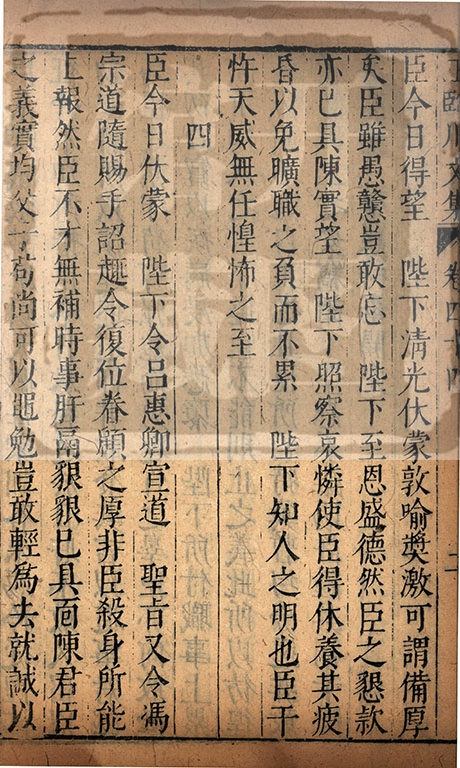 王臨川文集 卷四十四 二
臣今日得望 陛下清光伏蒙敦喻奬激可謂備厚
矣臣雖愚戇豈敢忘 陛下至恩盛德然臣之懇款
亦已具陳實望 陛下照察哀憐使臣得休養其疲
昏以免曠職之負而不累 陛下知人之明也臣干
忤天威無任惶怖之至
四
臣今日伏蒙 陛下令吕惠卿宣道 聖旨又令馮
宗道隨賜手詔趣令復位眷顧之厚非臣殺身所能
上報然臣不才無補時事肝鬲貇貇已具面陳君臣
之義實均父子苟尚可以黽勉豈敢輕爲去就誠以